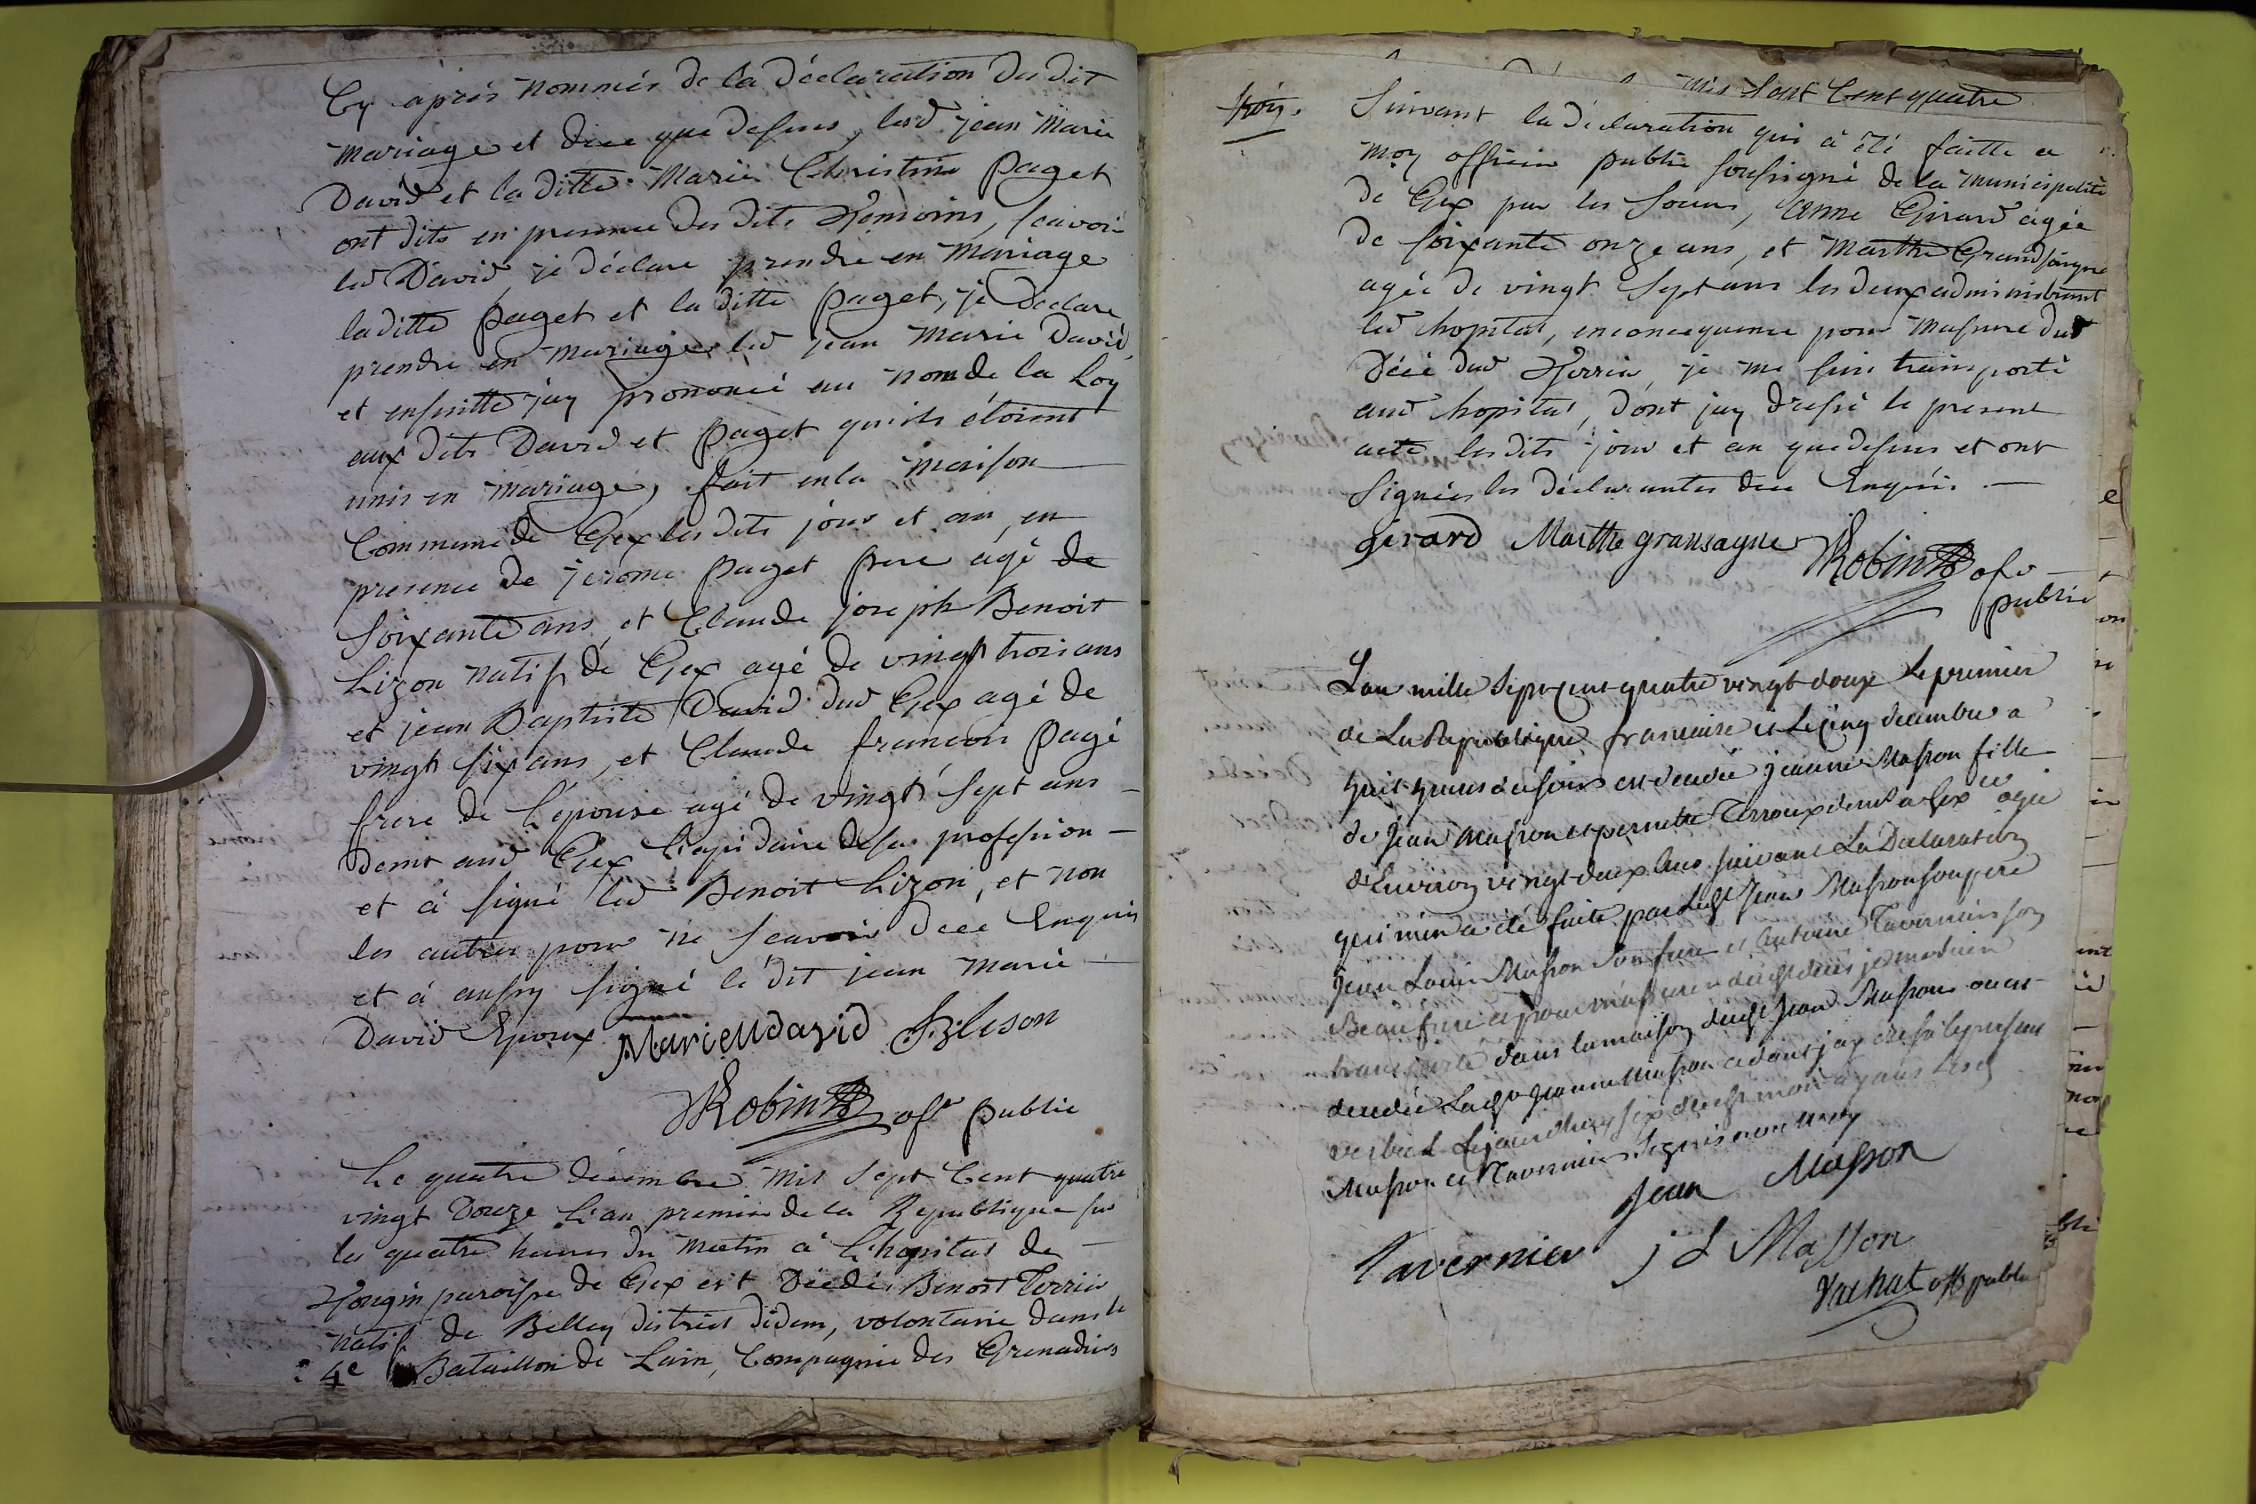 Cy après nommés de la déclaration du dit
mariage et dece que desus, led jean Marie
David et la ditte Marie Christine Paget
ont dits en presence des dits temoins, scavoir
led David, je déclare prendre en Mariage
laditte paget et la ditte paget, je déclare
prendre en mariage led jean Marie David,
et ensuitte jay prononcé au nom de la Loy
aux dits David et Paget quils étoient
unis en mariage, fait en la maison
Commune de Gex les dits jour et an, en
presence de jerome paget pere agé de
soixante ans, et Claude joseph Benoit
Lizon natif de Gex agé de vingt trois ans
et jean Baptiste David dud Gex agé de
vingt six ans, et Claude francois pagé
frere de l'épouse agé de vingt sept ans
demt aud Gex Lapidaire de sa profession
et à signé led Benoit Lizon, et non
les autres pour ne scavoir dece Enquis
et à aussy signé le dit jean Marie
David Epoux Marieudavid JBLison
Robin offr public
Le quatre décembre mil sept Cent quatre
vingt Douze L'an premier de la Republique sur
les quatre heures du matin à L'hopital de
Tougin paroisse de Gex est Décédé Benoit Terrin
natif de Belley district didem, volontaire dans le
4e Bataillon de Lain, Compagnie des Grenadiers
mil sept Cent quatre
Suivant la déclaration qui à été faitte a
moy officier public soussigné de la municipalité
de Gex par les Soeurs, Anne Girard agée
de soixante onze ans, et Marthe Grandsaigne
agée de vingt Sept ans les deux administrant
led hopital, enconcequence pour Massure dud
Décé dud Terrin, je me suis transporté
aud hopital, dont jay dressé le present
acte les dits jour et an que desus et ont
signées les déclarantes dece Enquis.
girard Marthe gransagne
Robin ofr
public
Lan mille sept cent quatre vingt douze Le premier
de La Republique francaise et Le cinq decembre a
huit heures du soir est decedée jeanne Masson fille
de jean Masson et pernette Terroux demt a Gex agée
d'Environ vingt deux Ans suivant La Declaration
qui men a été faite par Led jean Masson son pere
jean Louis Masson Son frere et Antoine Tavernier son
Beau frere et pour massurer dudt deces je me suis
transporté dans la maison dudt jean Masson ou est
decedée Ladt jeanne Masson et dont jay dressé le present
verbal Le jourdhuy six dudt mois ayans Lesd
Masson et Tavernier Signés avec moy
jean Masson
Tavernier j L Masson
Vachat off public